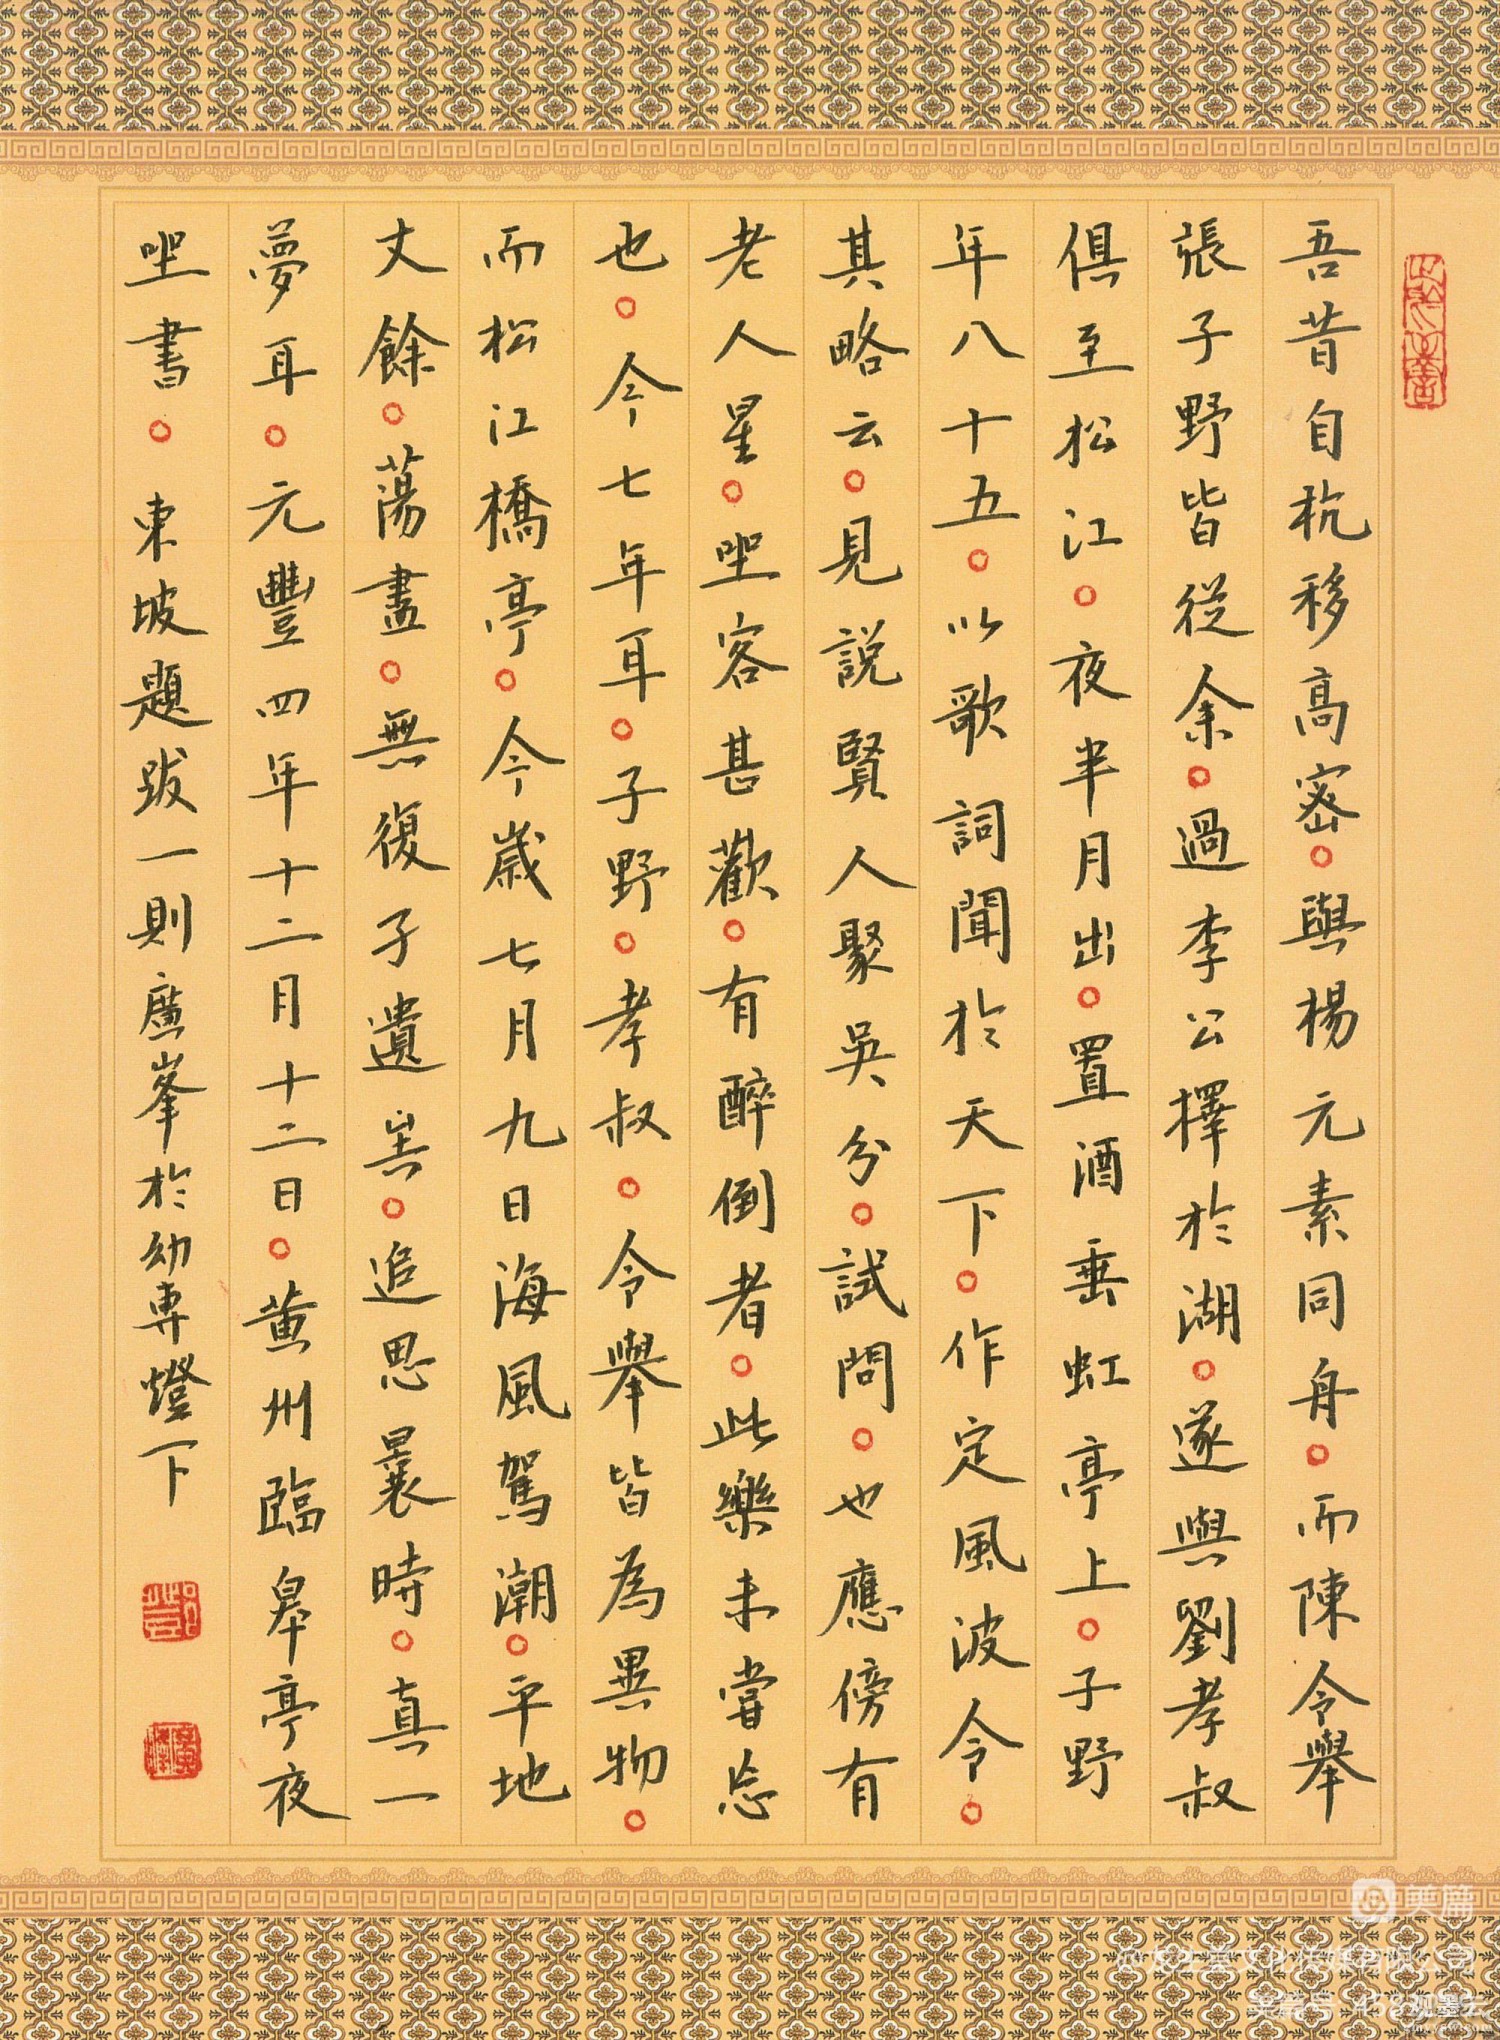 吾昔自杭移高密。與楊元素同舟。而陳令舉
張子野皆從余。過李公擇於湖。遂與劉孝叔
俱至松江。夜半月出。置酒垂虹亭上。子野
年八十五。以歌詞聞於天下。作定風波令。
其略云。見說賢人聚吳分。試問。也應傍有
老人星。坐客甚歡。有醉倒者。此樂未嘗忘
也。今七年耳。子野。孝叔。令舉皆為異物。
而松江橋亭。今歲七月九日海風駕潮。平地
丈餘。蕩盡。無復孑遺矣。追思曩時。真一
夢耳。元豐四年十二月十二日。黃州臨皋亭夜
坐書。東坡題跋一則 廬峯於幼專燈下
美篇
文化传媒有限公司
美篇号